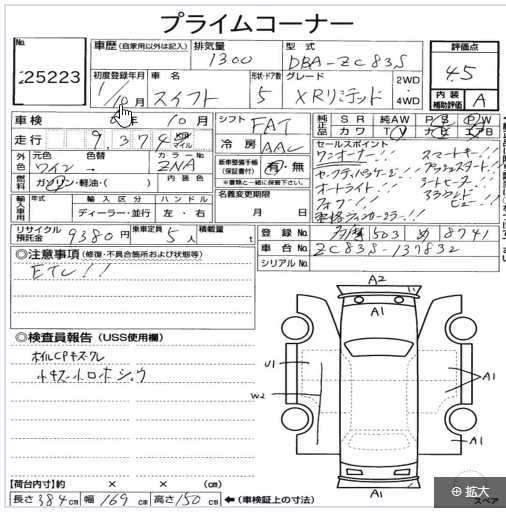 プライムコーナー
No.
25223
車歴 (自家用以外は記入)
排気量
1300
型式
DBA-ZC83S
評価点
4.5
初度登録年月
1/10月
車名
スイフト
形状・ドア数
5
グレード
XRリミテッド
2WD
・
4WD
内装
補助評価
A
車検
年 10月
シフト
FAT
純正品
SR 純AW PS PW
カワ TV ナビ エアB
走行
9,374
km
マイル
冷房
AAC
セールスポイント
ワンオーナー!! スマートキー!!
セーフティパッケージ!! プッシュスタート!!
オートライト!! シートヒーター!!
フォグ!!
外色
元色
ワイン
色替
→
カラーNo.
ZNA
新車整備手帳
(保証書付)
有・無
※書類と一緒に保管下さい。
燃料
ガソリン・軽油・( )
内装色
名義変更期限
月 日
輸入車用
年式
輸入区分
ディーラー・並行
ハンドル
左・右
リサイクル
預託金
9380円
乗車定員
5人
積載量
t
登録No.
503 め 8741
車台No.
ZC83S-137832
シリアルNo.
◎注意事項 (修復・不具合箇所および状態等)
ETC!!
◎検査員報告 (USS使用欄)
ホイルCPキズスレ
小キズ小ロホショウ
A2
A1
U1
W2
A1
A1
A1
【荷台内寸】約 × × (cm)
長さ384cm 幅169cm 高さ150cm
←(車検証上の寸法)
スペア
拡大